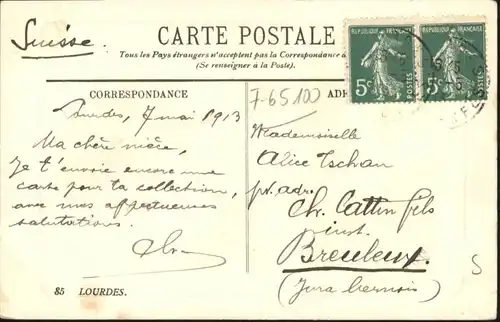 Suisse.
CARTE POSTALE
Tous les Pays étrangers n'acceptent pas la Correspondance a
(Se renseigner à la Poste).
RÉPUBLIQUE FRANÇAISE
5c POSTES
RÉPUBLIQUE FRANÇAISE
5c POSTES
CORRESPONDANCE
ADR
7-65100
Lourdes, 7 mai 1913
Ma chère nièce,
Je t'envoie encore une
carte pour ta collection,
avec mes affectueuses
salutations.
Mademoiselle
Alice Tschan
pr. adr. Ch. Cattin fils
inst.
Breuleux.
(Jura bernois)
S
85 LOURDES.